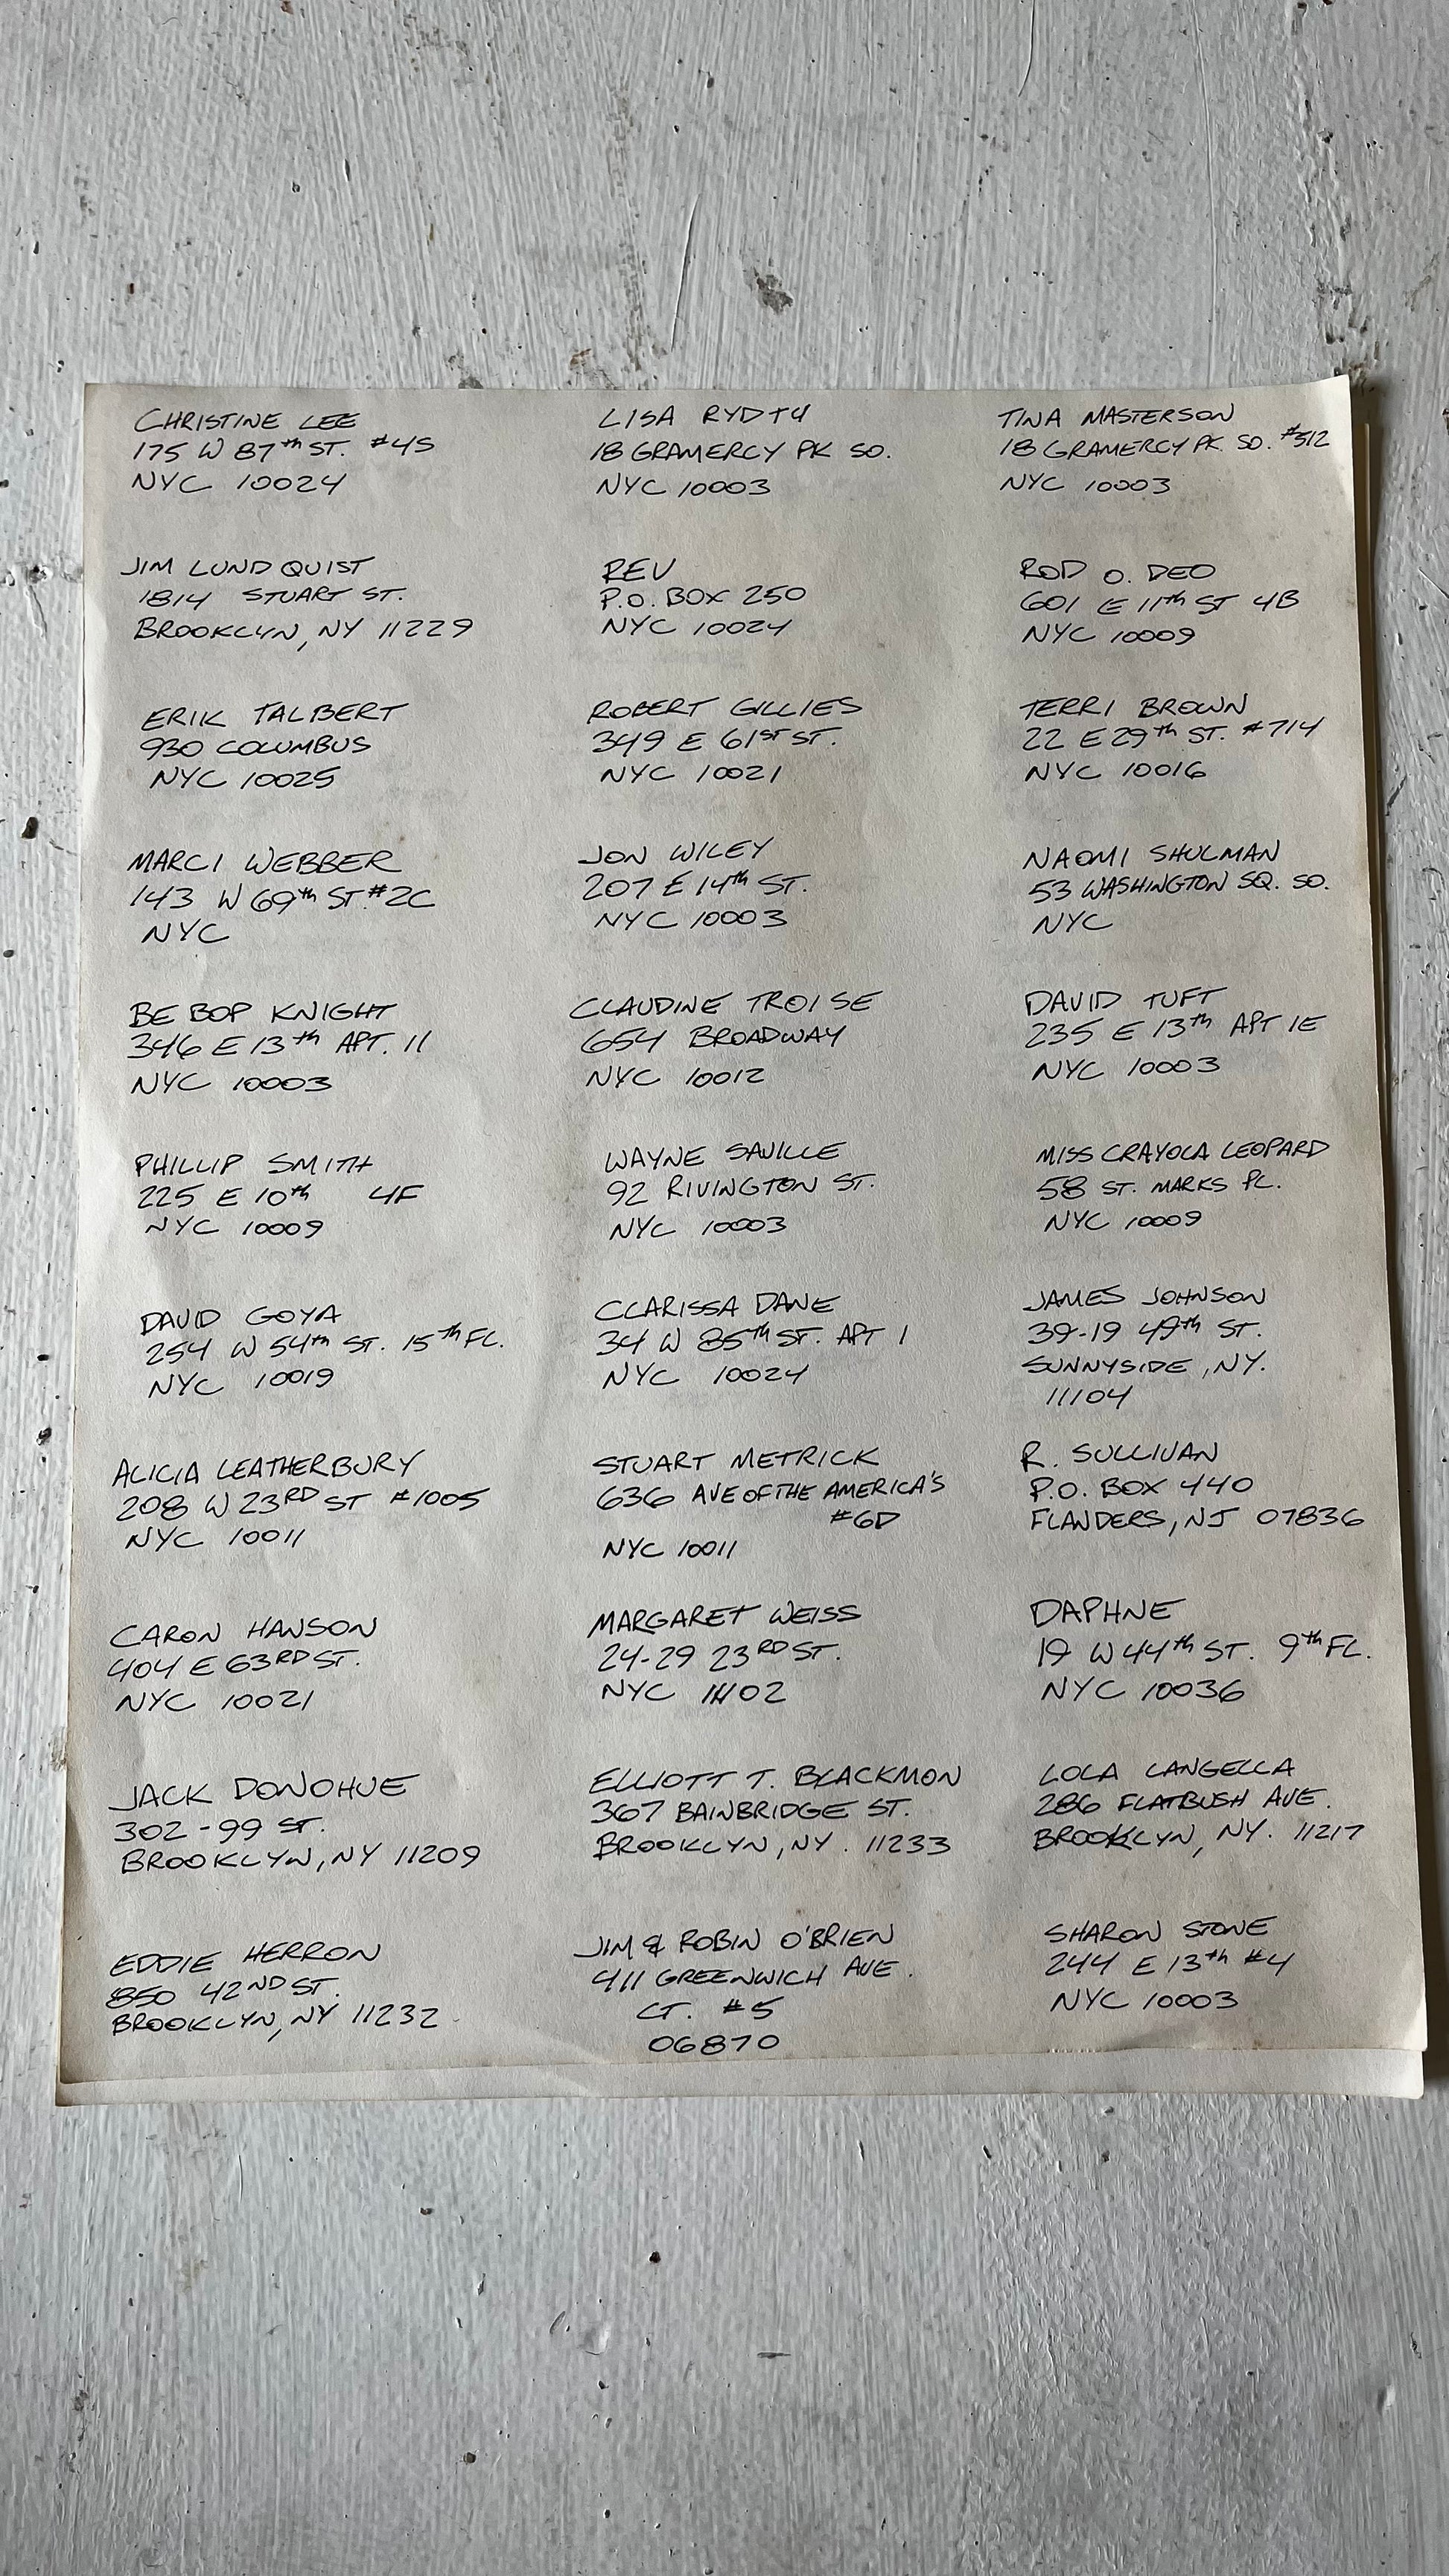 CHRISTINE LEE
175 W 87th ST. #4S
NYC 10024
LISA RYDTY
18 GRAMERCY PK SO.
NYC 10003
TINA MASTERSON
18 GRAMERCY PK. SO. #512
NYC 10003
JIM LUNDQUIST
1814 STUART ST.
BROOKLYN, NY 11229
REV
P.O. BOX 250
NYC 10024
ROD O. DEO
601 E 11th ST 4B
NYC 10009
ERIK TALBERT
930 COLUMBUS
NYC 10025
ROBERT GILLIES
349 E 61ST ST.
NYC 10021
TERRI BROWN
22 E 29th ST. #714
NYC 10016
MARCI WEBBER
143 W 69th ST. #2C
NYC
JON WILEY
207 E 14th ST.
NYC 10003
NAOMI SHULMAN
53 WASHINGTON SQ. SO.
NYC
BE BOP KNIGHT
346 E 13th APT. 11
NYC 10003
CLAUDINE TROISE
654 BROADWAY
NYC 10012
DAVID TUFT
235 E 13th APT 1E
NYC 10003
PHILLIP SMITH
225 E 10th 4F
NYC 10009
WAYNE SAVILLE
92 RIVINGTON ST.
NYC 10003
MISS CRAYOLA LEOPARD
58 ST. MARKS PL.
NYC 10009
DAVID GOYA
254 W 54th ST. 15th FL.
NYC 10019
CLARISSA DANE
34 W 85th ST. APT 1
NYC 10024
JAMES JOHNSON
39-19 49th ST.
SUNNYSIDE, NY.
11104
ALICIA LEATHERBURY
208 W 23RD ST #1005
NYC 10011
STUART METRICK
636 AVE OF THE AMERICA'S
#6D
NYC 10011
R. SULLIVAN
P.O. BOX 440
FLANDERS, NJ 07836
CARON HANSON
404 E 63RD ST.
NYC 10021
MARGARET WEISS
24-29 23RD ST.
NYC 11102
DAPHNE
19 W 44th ST. 9th FL.
NYC 10036
JACK DONOHUE
302-99 ST.
BROOKLYN, NY 11209
ELLIOTT T. BLACKMON
367 BAINBRIDGE ST.
BROOKLYN, NY. 11233
LOLA LANGELLA
286 FLATBUSH AVE.
BROOKLYN, NY. 11217
EDDIE HERRON
850 42ND ST.
BROOKLYN, NY 11232
JIM & ROBIN O'BRIEN
411 GREENWICH AVE.
CT. #5
06870
SHARON STONE
244 E 13th #4
NYC 10003